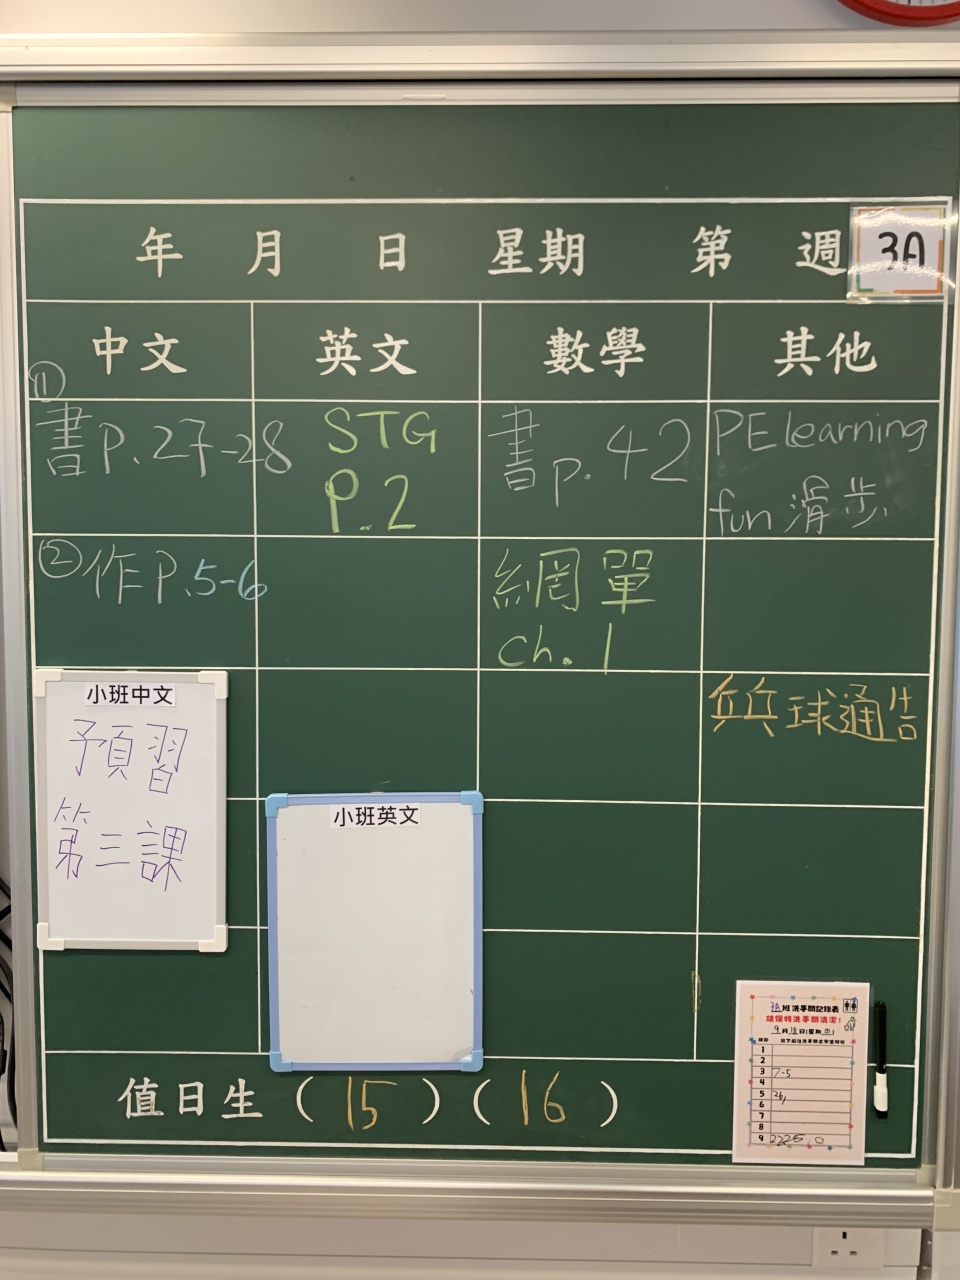 年 月 日 星期 第 週 3A
中文 英文 數學 其他
①
書P.27-28
STG
P.2
書p.42
PE learning
fun 滑步
②作P.5-6
網單
ch.1
乒乓球通告
小班中文
預習
第三課
小班英文
3A班洗手間記錄表
請保持洗手間清潔!
9月18日(星期四)
1
2
3 7-5
4
5 26,
6
7
8
9
值日生（15）（16）